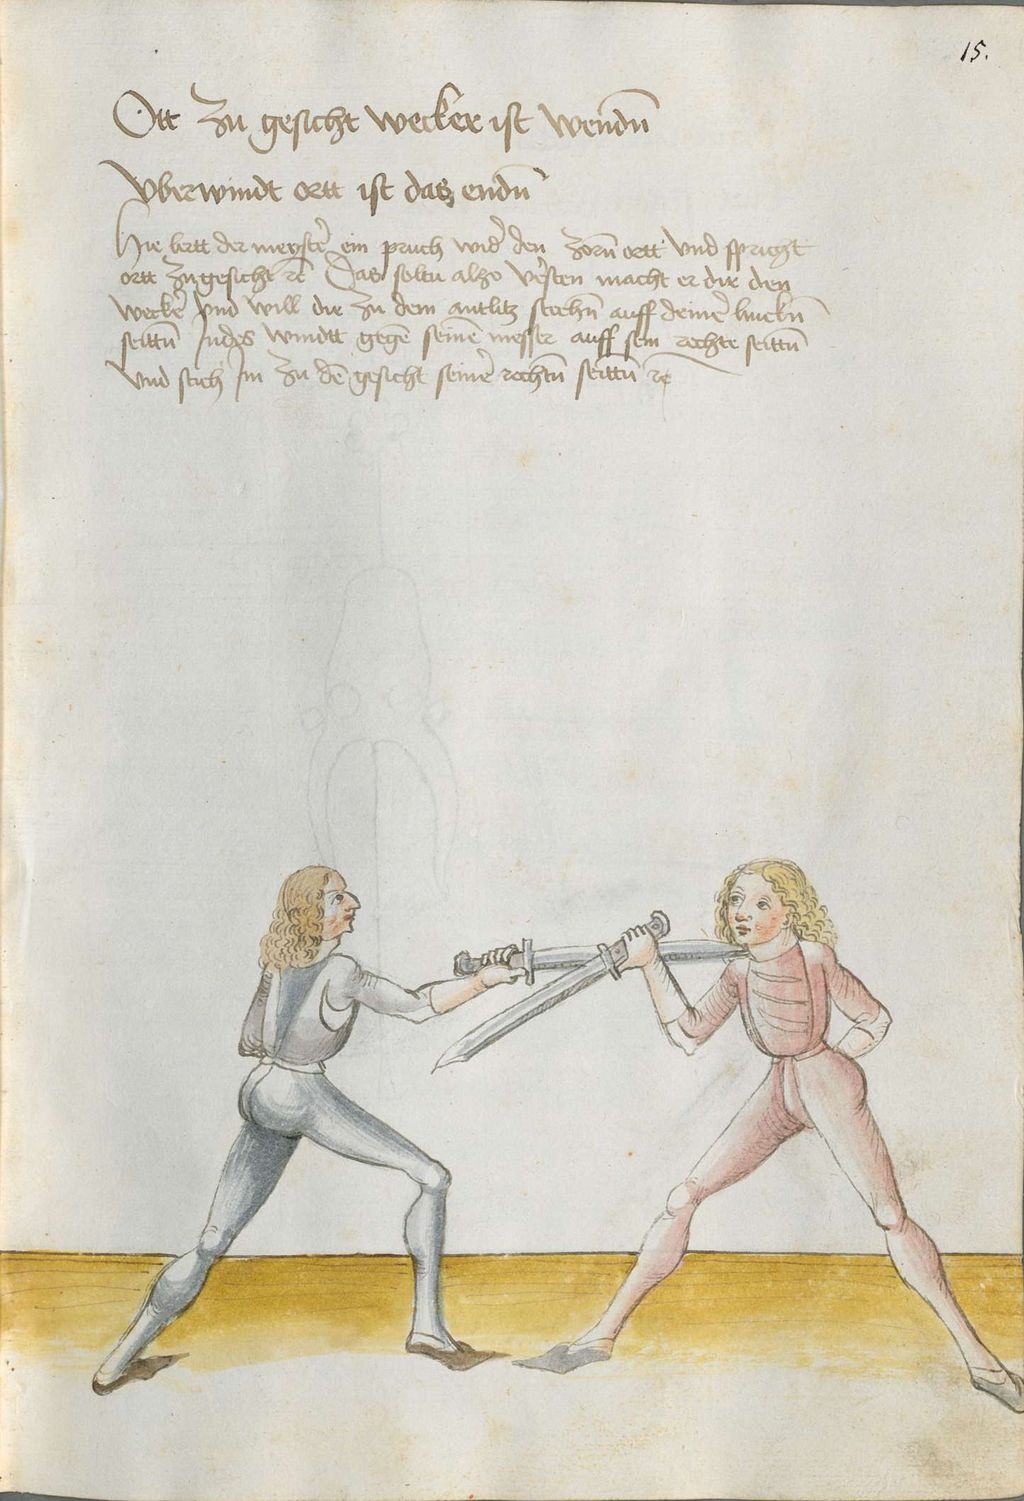 15.
Ott zu gesicht wecker ist wendn̄
Vberwindt ortt ist das endn̄
Hie lertt der meyster̄ ein pruch wid' den zorn̄ ortt vnd spricht
ortt zu gesicht rc̄ Das soltu also v'sten macht er dir den
wecker̄ vnd will dir zu dem antlitz stechn̄ auff deiner̄ linckn̄
seittn̄ Indes windtt gegē seinē messer auff sein rechte seittn̄
vnd stich im zu dē gesicht seiner̄ rechtn̄ seittn̄ rc̄